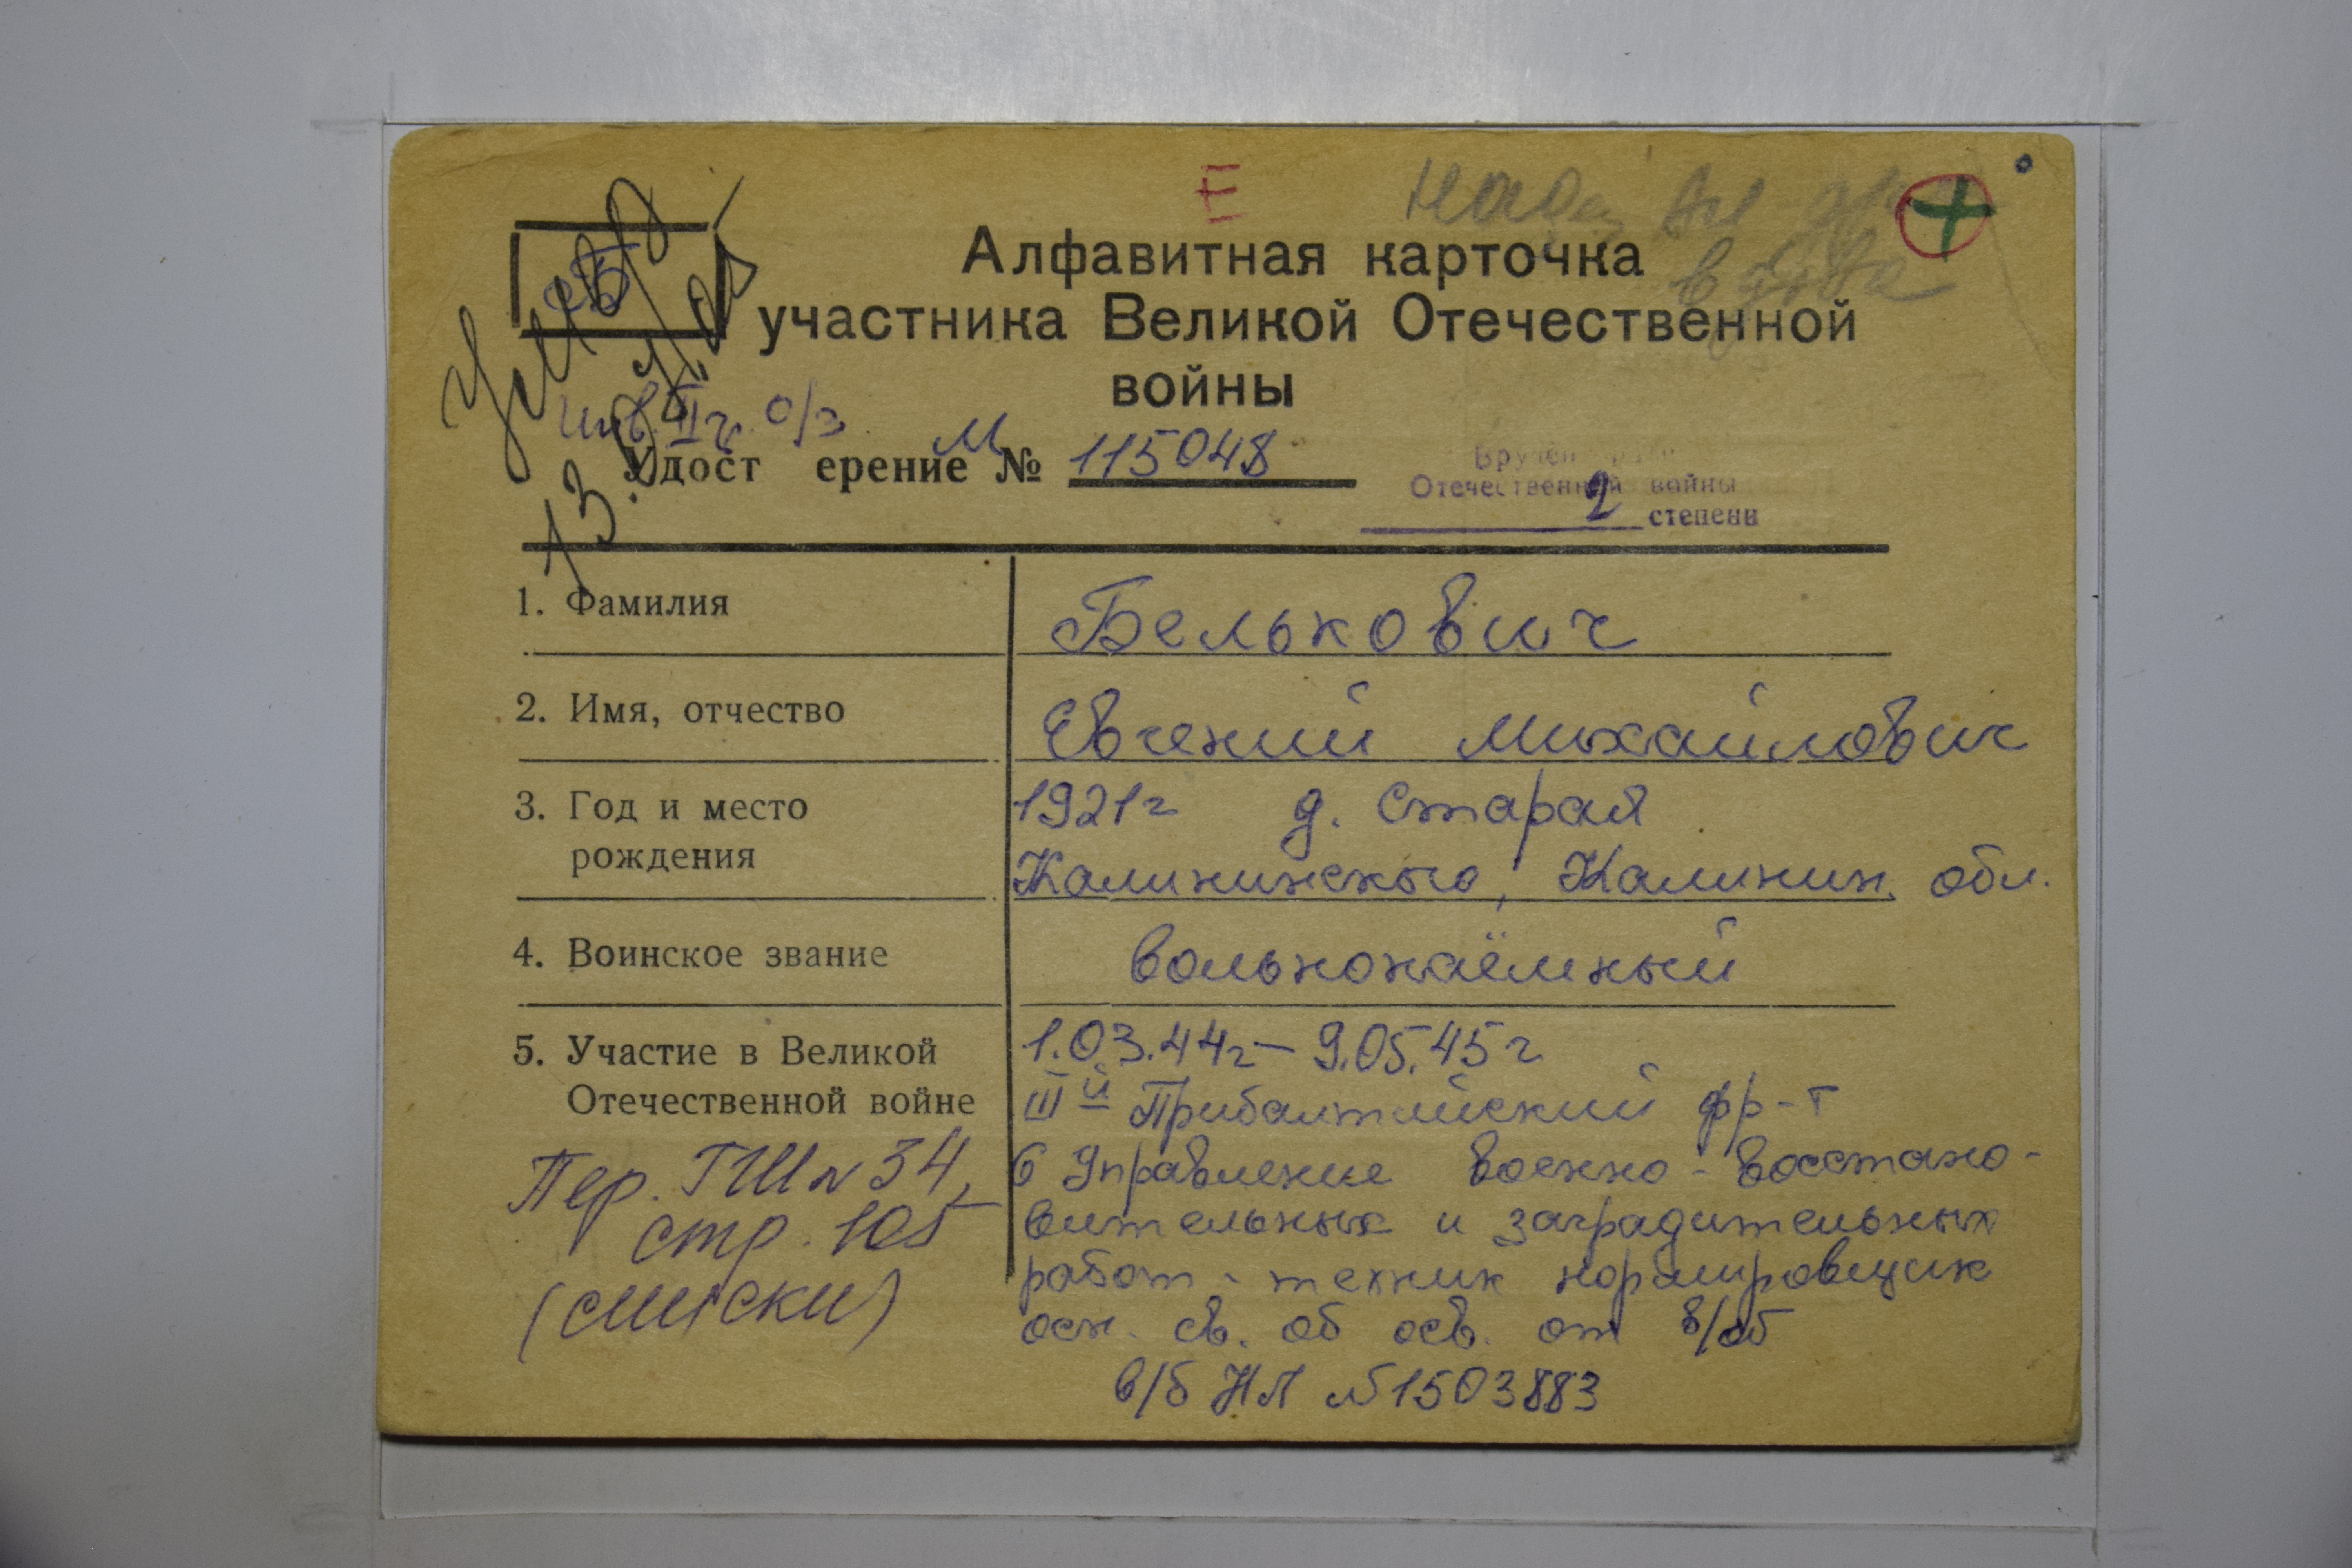 II
Алфавитная карточка
участника Великой Отечественной
войны
Умер
Инв. IIг. о/з
М
Удост ерение № 115048
Вручен
Отечественной войны
2 степени
1. Фамилия Белькович
2. Имя, отчество Евгений Михайлович
3. Год и место 1921г д. Старая
рождения Калининского, Калинин. обл.
4. Воинское звание вольнонаёмный
5. Участие в Великой 1.03.44г – 9.05.45г
Отечественной войне IIIй Прибалтийский фр-т
Пер. ГШ № 34, 6 Управление военно-восстано-
стр. 105 вительных и заградительных
(списки) работ - техник нормировщик
осн. св. об осв. от в/об
в/б НЛ №1503883